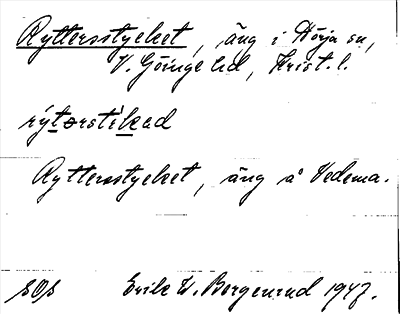 Ryttersstycket, äng i Hörja sn,
V. Göinge hd, Krist. l.
rýtərstikad
Ryttersstycket, äng å Vedema.
SOS Erik W. Bergenrud 1947.